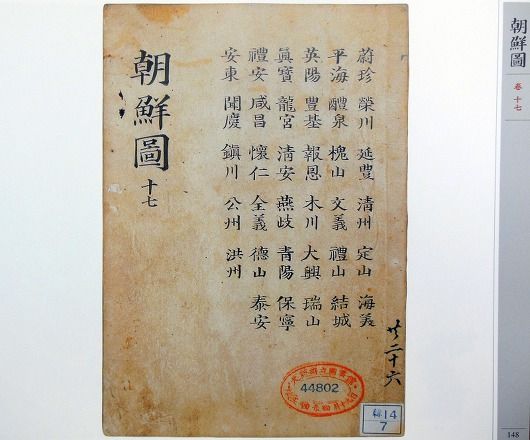 朝鮮圖 卷十七
蔚珍 榮川 延豐 清州 定山 海美
平海 醴泉 槐山 文義 禮山 結城
英陽 豐基 報恩 木川 大興 瑞山
眞寶 龍宮 清安 燕歧 青陽 保寧
禮安 咸昌 懷仁 全義 德山 泰安
安東 聞慶 鎭川 公州 洪州
朝鮮圖 十七
二十六
大阪府立圖書館
44802
14
7
148